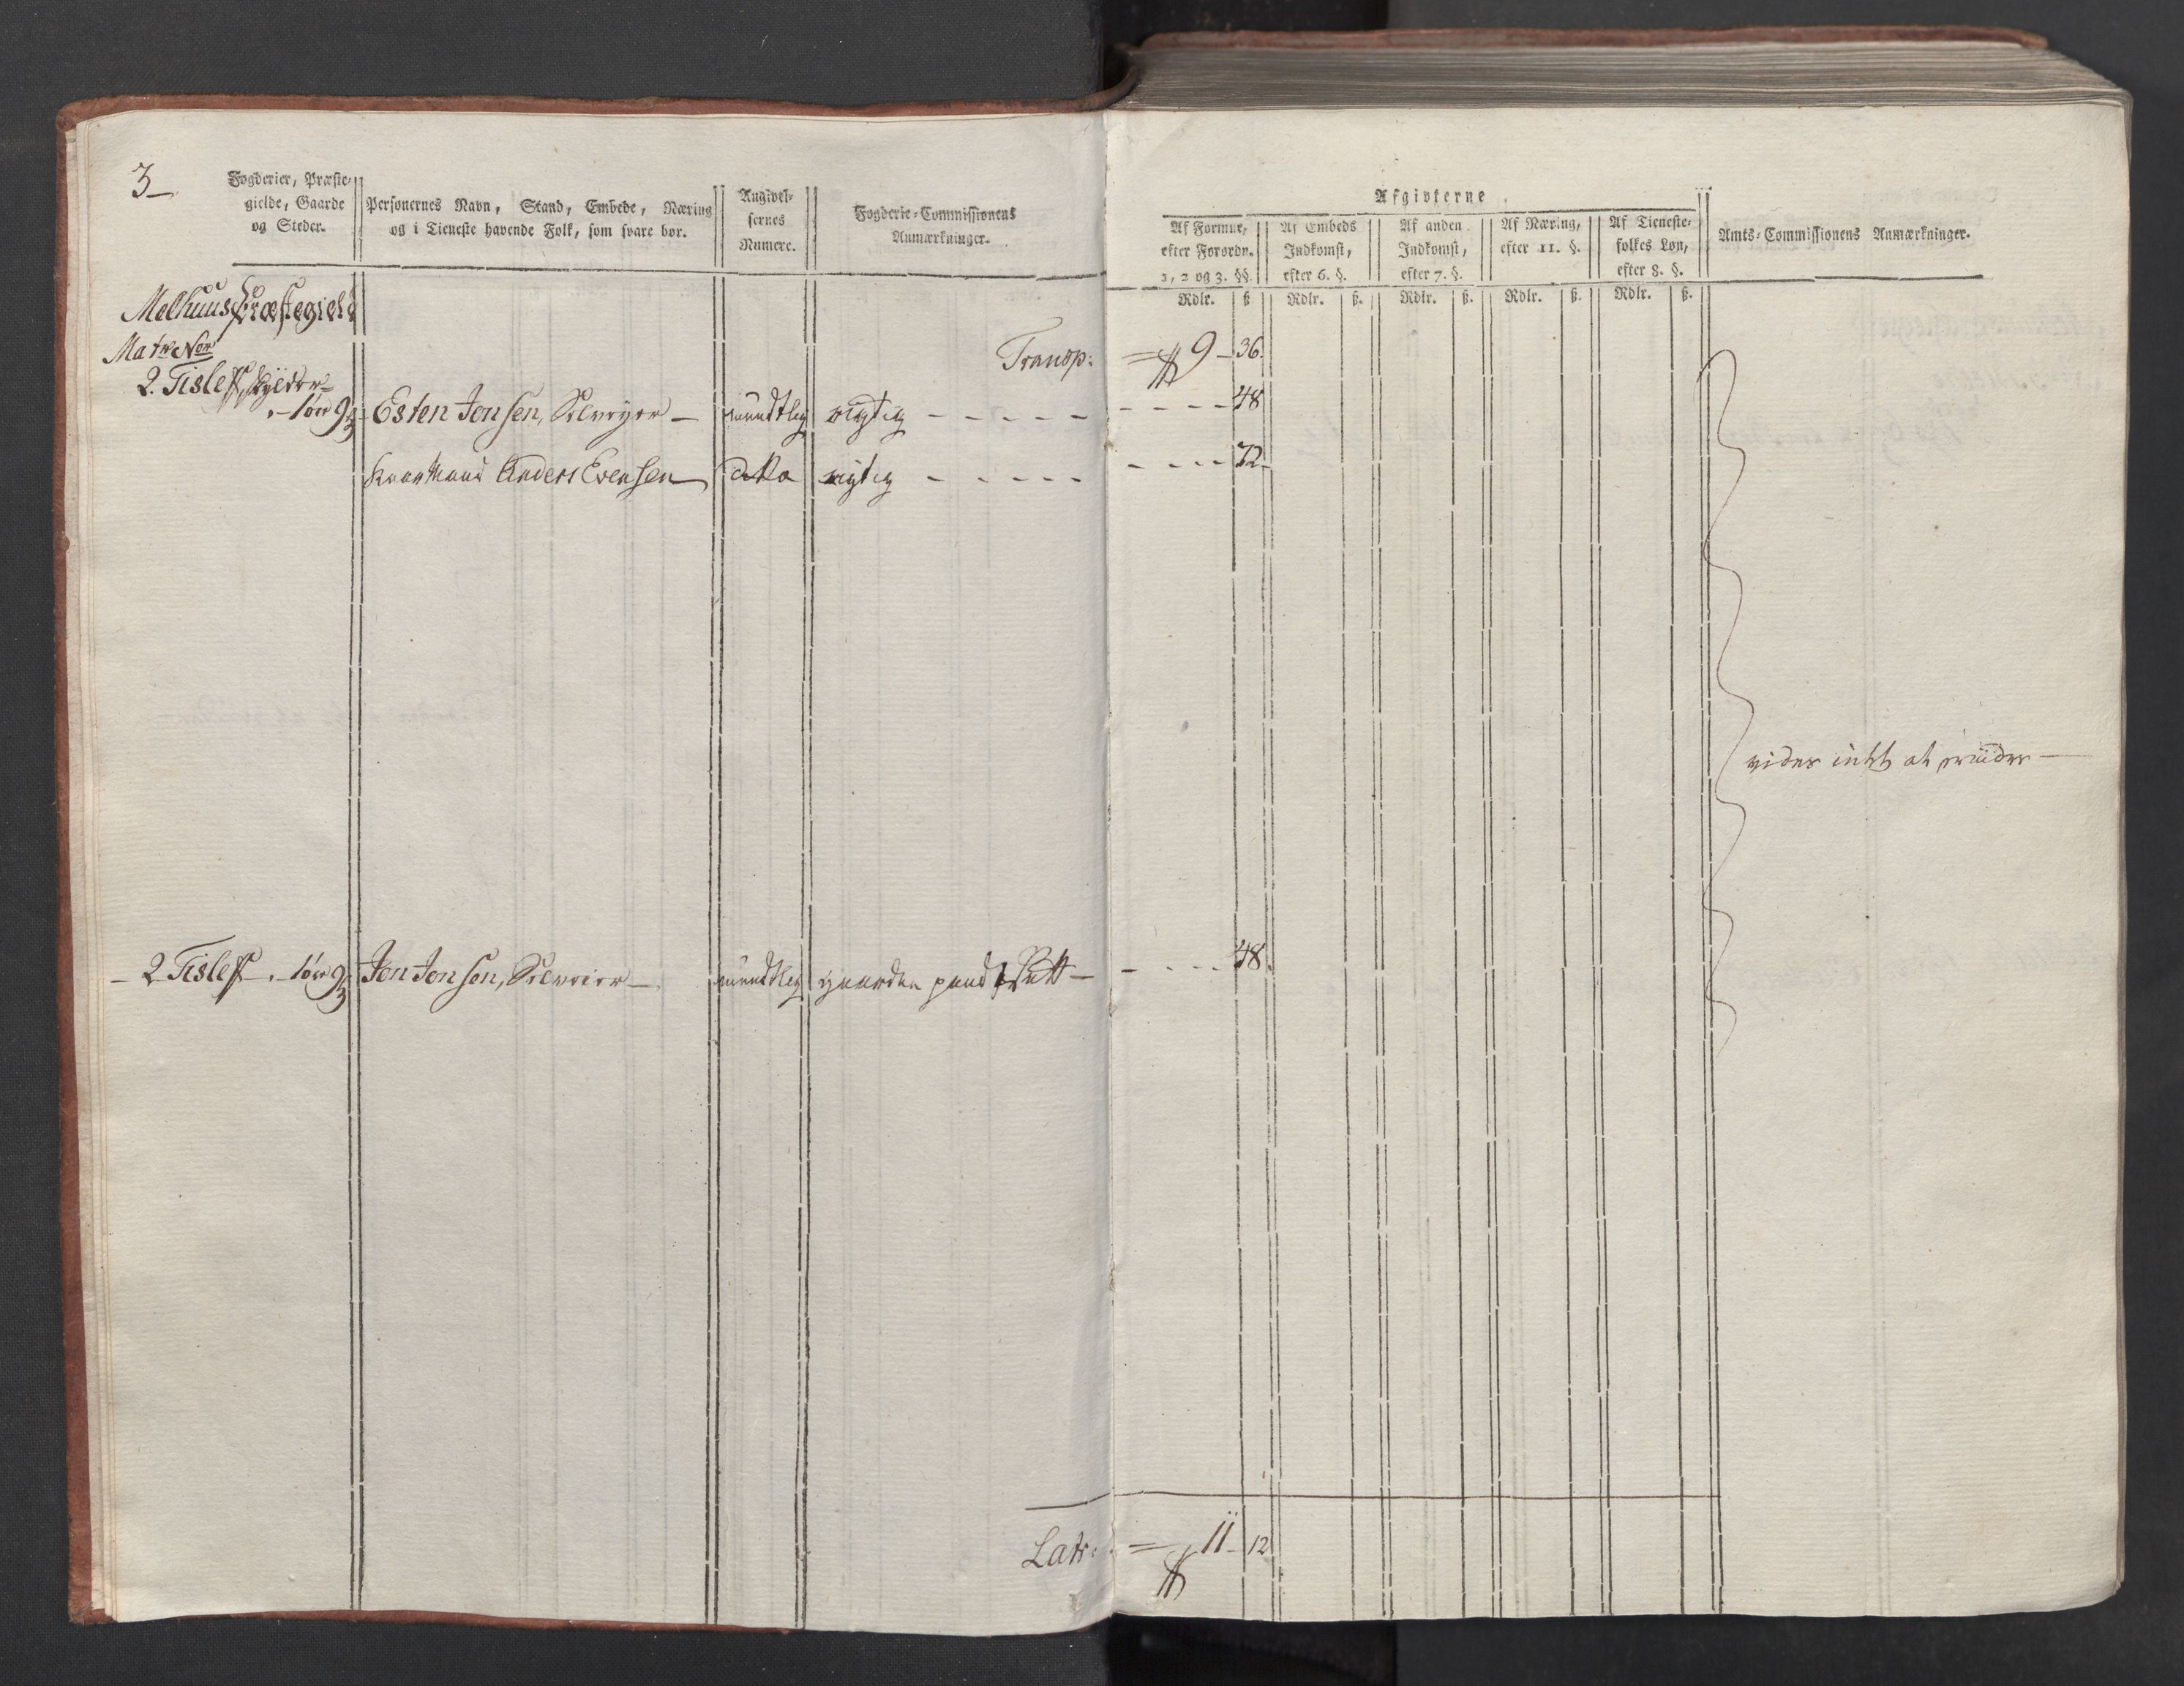 3
Fogderier, Præste-
gielde, Gaarde
og Steder.
Personernes Navn, Stand, Embede, Næring
og i Tieneste havende Folk, som svare bør.
Angivel-
sernes
Numere.
Fogderie-Commissionens
Anmærkninger.
Afgivterne.
Af Formue,
efter Forordn.
1, 2 og 3. §§.
Af Embeds
Indkomst,
efter 6. §.
Af anden
Indkomst,
efter 7. §.
Af Næring,
efter 11. §.
Af Tieneste-
folkes Løn,
efter 8. §.
Amts-Commissionens Anmærkninger.
Rdlr. ß Rdlr. ß. Rdlr. ß. Rdlr. ß. Rdlr. ß.
Melhuus Præstegield
Matr No
Transp: = 9 - 36.
2. Tislef, skylder
- 1 ør 9 Esten Jonsen, mundtlig rigtig - - - - - 48
Kaarmand Anders Evensen ditto rigtig - - - - - 72
vides intet at erindre
- 2 Tislef - 1 ør 9 Jon Jonsen, mundtlig gaarden pandtsatt - 48.
Latr: = 11 - 12